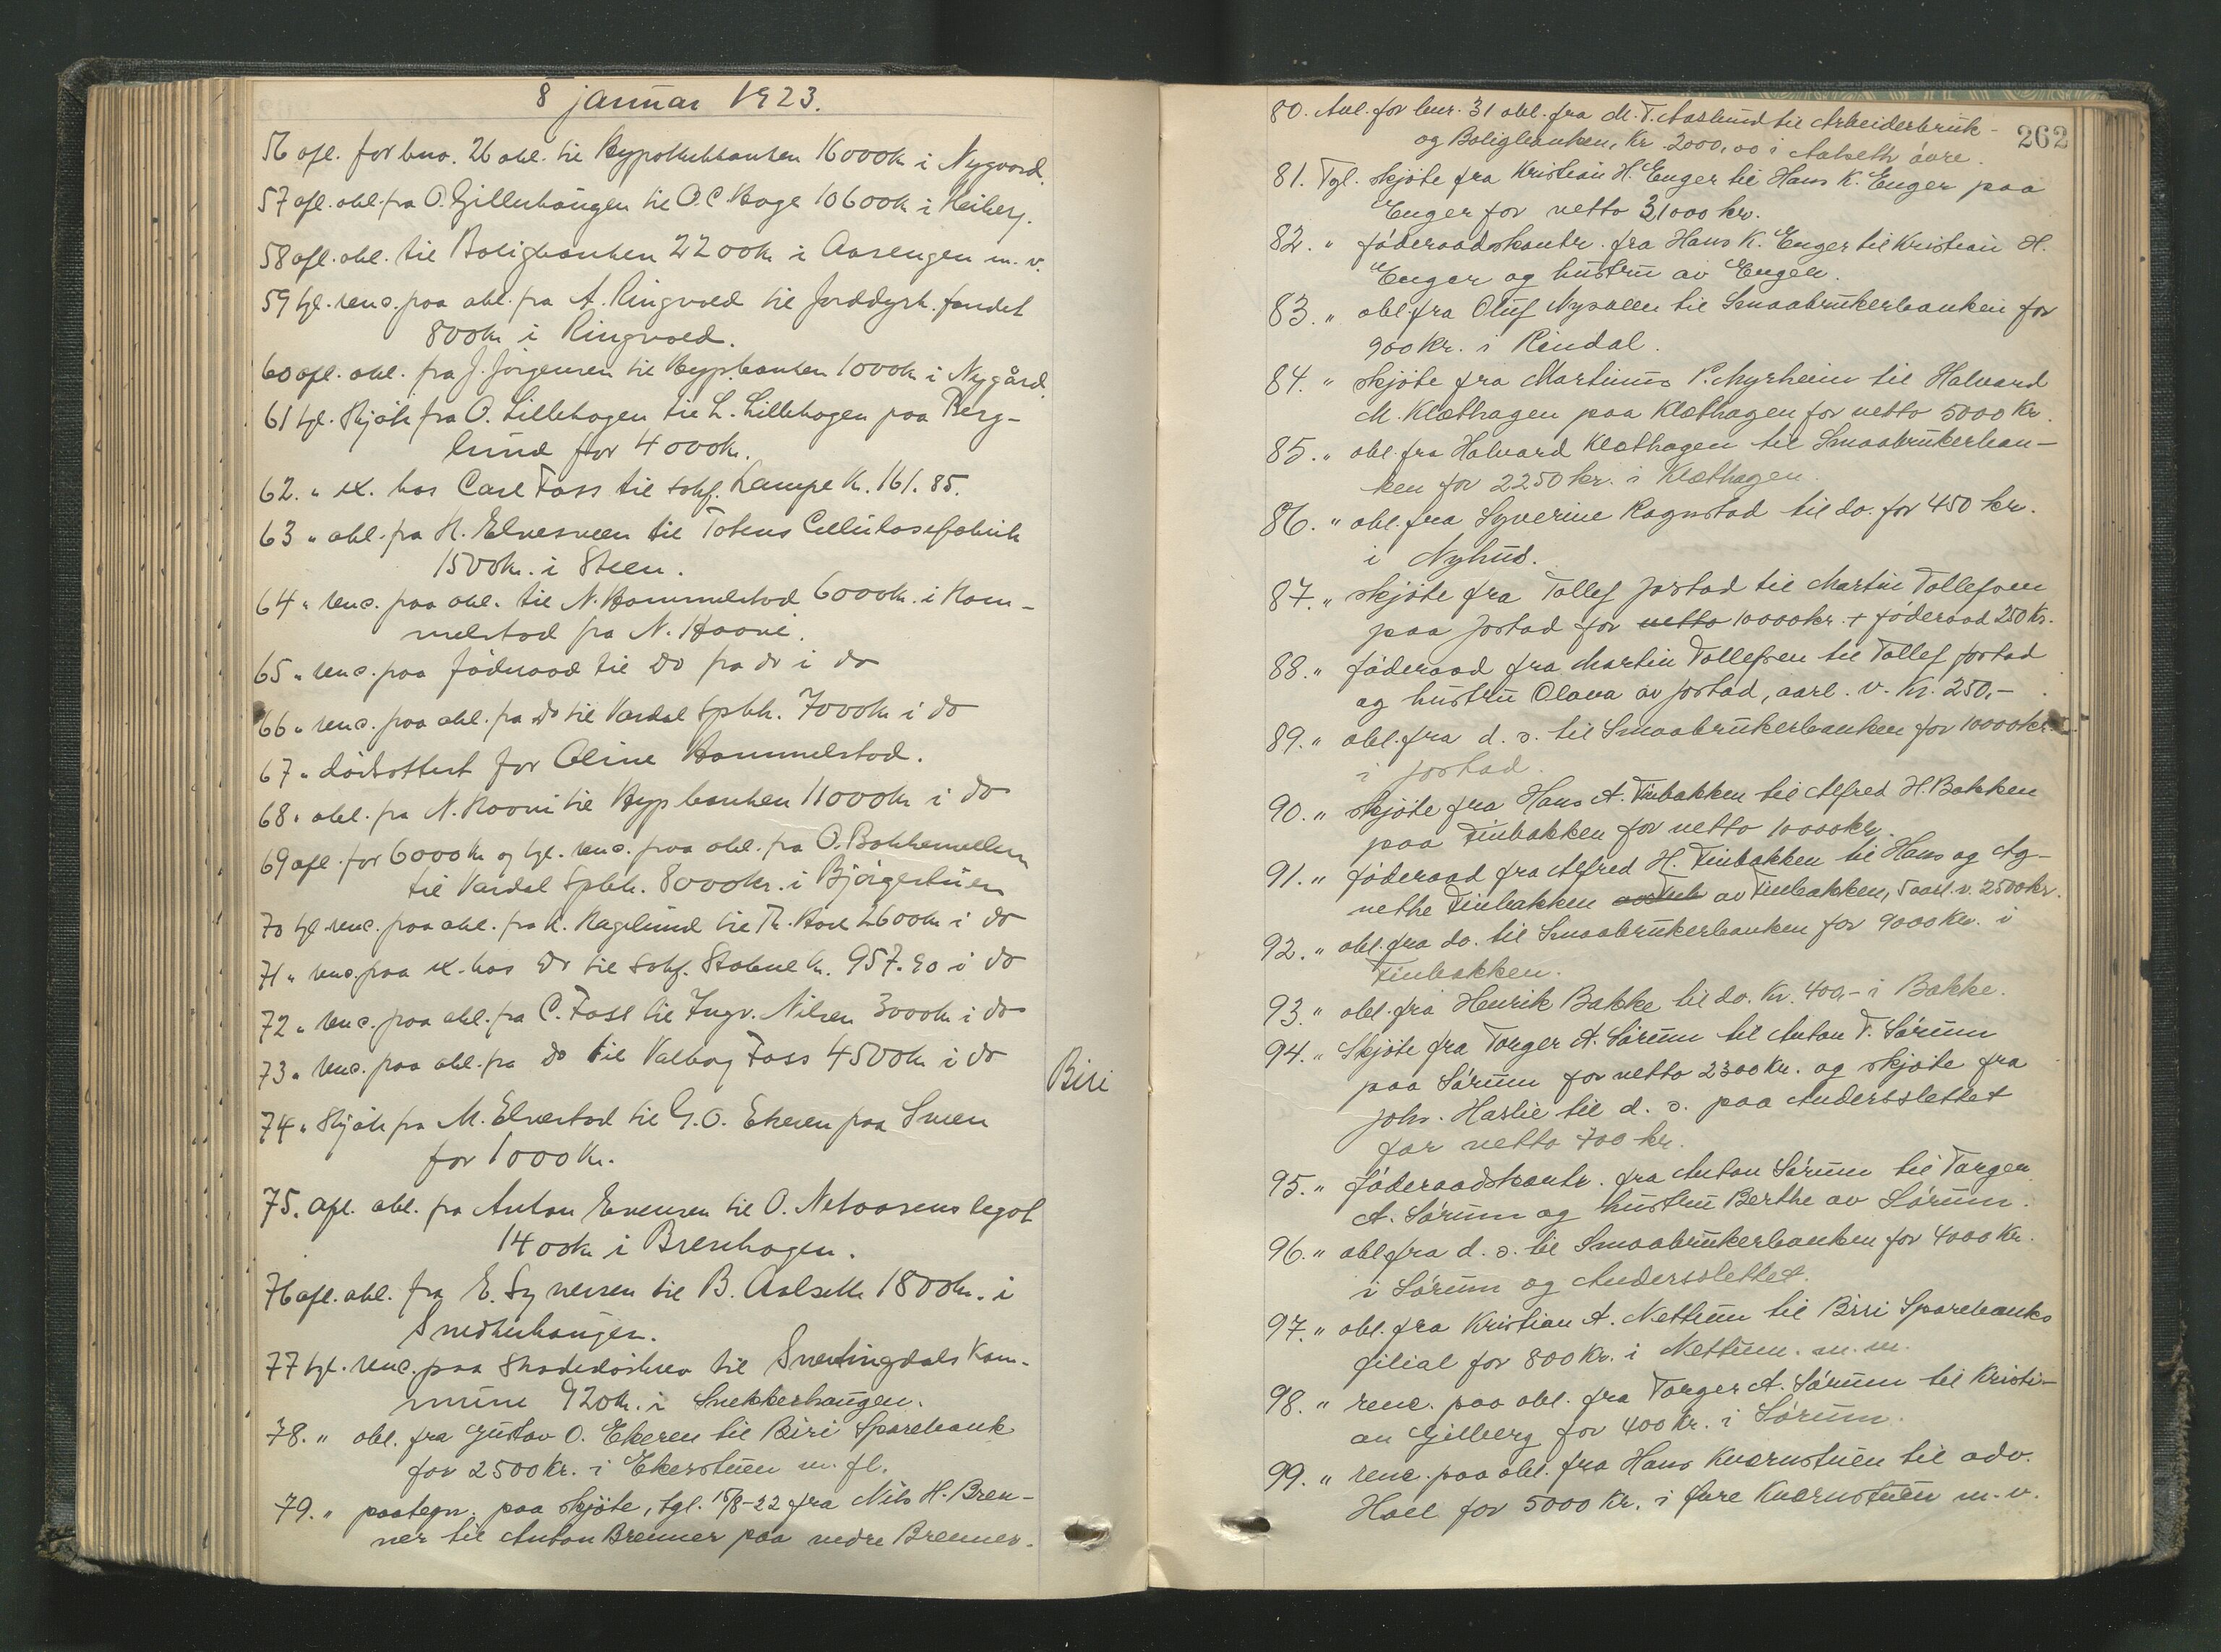 8 januar 1923.
56 afl. for bno. 26 obl. til Hypothekbanken 16000 kr i Nygaard.
57 afl. obl. fra O. Gillerhaugen til O. C. Hage 10600 kr i Heiberg.
58 afl. obl. til Boligbanken 2200 kr i Aasengen m. v.
59 tgl. renc. paa obl. fra A. Ringvold til Jorddyrk. fondet
800 kr i Ringvold.
60 afl. obl. fra J. Jörgensen til Hypbanken 1000 kr i Nygård
61 tgl. Skjöte fra O. Lillehagen til L. Lillehagen paa Berg-
lund for 4000 kr.
62. " ex. hos Carl Foss til sakf. Lampe kr. 161.85.
63 " obl. fra H. Elvesveen til Totens Cellulosefabrik
1500 kr. i Steen.
64 " renc. paa obl. til N. Hommelstad 6000 kr. i Hom-
melstad fra N. Hoove.
65 " renc. paa föderaad til do fra do i do
66 " renc. paa obl. fra do til Vardal Spbk. 7000 kr i do
67 " dödsattest for Oline Hommelstad.
68 " obl. fra N. Hoove til Hypbanken 11000 kr i do
69 afl. for 6000 kr og tgl. renc. paa obl. fra O. Bakkemellem
til Vardal Spbk. 8000 kr. i Björgestuen
70 tgl. renc. paa obl. fra K. Hagelund til Th. Hoel 2600 kr i do
71 " renc. paa ex. hos do til sakf. Stabue kr. 957.90 i do
72 " renc. paa obl. fra C. Foss til Ingv. Nilsen 3000 kr i do
73 " renc. paa obl. fra do til Valborg Foss 4500 kr i do
Biri
74 " Skjöte fra M. Elvestad til G. O. Ekeren paa Smen
for 1000 kr.
75. afl. obl. fra Anton Evensen til O. Netaasens legat
1400 kr i Brenhagen.
76 afl. obl. fra E. Syversen til B. Aalseth 1800 kr. i
Snekkerhaugen.
77 tgl. renc. paa Skadeslösbrev til Snertingdals Kom-
mune 920 kr. i Snekkerhaugen.
78. " obl. fra Gustav O. Ekeren til Biri Sparebank
for 2500 kr. i Ekerstuen m. fl.
79. " paategn. paa skjöte, tgl. 15/8-22 fra Nils H. Bren-
ner til Anton Brenner paa nedre Brenner.
262
80. Avl. for bnr. 31 obl. fra M. T. Aaslund til Arbeiderbruk-
og Boligbanken, Kr. 2000,00 i Aalseth övre.
81. Tgl. skjöte fra Kristian H. Enger til Hans K. Enger paa
Enger for netto 31000 kr.
82. " föderaadskontr. fra Hans K. Enger til Kristian H.
Enger og hustru av Engen.
83. " obl. fra Oluf Nysveen til Smaabrukerbanken for
900 kr. i Rindal.
84. " skjöte fra Martinus P. Myrheim til Halvard
M. Klæthagen paa Klæthagen for netto 5000 Kr.
85. " obl. fra Halvard Klæthagen til Smaabrukerban-
ken for 2250 kr. i Klæthagen.
86. " obl. fra Syverine Rognstad til do. for 450 kr.
i Nyhus.
87. " skjöte fra Tollef Jostad til Martin Tollefsen
paa Jostad for netto 10000 kr. + föderaad 250 Kr.
88. " föderaad fra Martin Tollefsen til Tollef Jostad
og hustru Olava av Jostad, aarl. v. Kr. 250,-
89. " obl. fra d. s. til Smaabrukerbanken for 10000 kr.
i Jostad.
90. " skjöte fra Hans A. Finbakken til Alfred H. Bakken
paa Finbakken for netto 10000 kr.
91. " föderaad fra Alfred H. Finbakken til Hans og Ag-
nethe Finbakken av Finbakken, 5 aarl. v. 2500 kr.
92. " obl. fra do. til Smaabrukerbanken for 9000 Kr. i
Finbakken.
93. " obl. fra Henrik Bakke til do. Kr. 400,- i Bakke.
94. " Skjöte fra Torger A. Sörum til Anton T. Sörum
paa Sörum for netto 2300 Kr. og skjöte fra
Johs. Haslie til d. s. paa Andersslettet
for netto 700 kr.
95. " föderaadskontr. fra Anton Sörum til Torger
A. Sörum og hustru Berthe av Sörum.
96. " obl. fra d. s. til Smaabrukerbanken for 4000 Kr.
i Sörum og Andersslettet.
97. " obl. fra Kristian A. Nettum til Biri Sparebanks
filial for 800 Kr. i Nettum. m. m.
98. " renc. paa obl. fra Torger A. Sörum til Kristi-
an Gjilberg for 400 Kr. i Sörum.
99. " renc. paa obl. fra Hans Kværnstuen til adv.
Hoel for 5000 Kr. i övre Kværnstuen m. v.